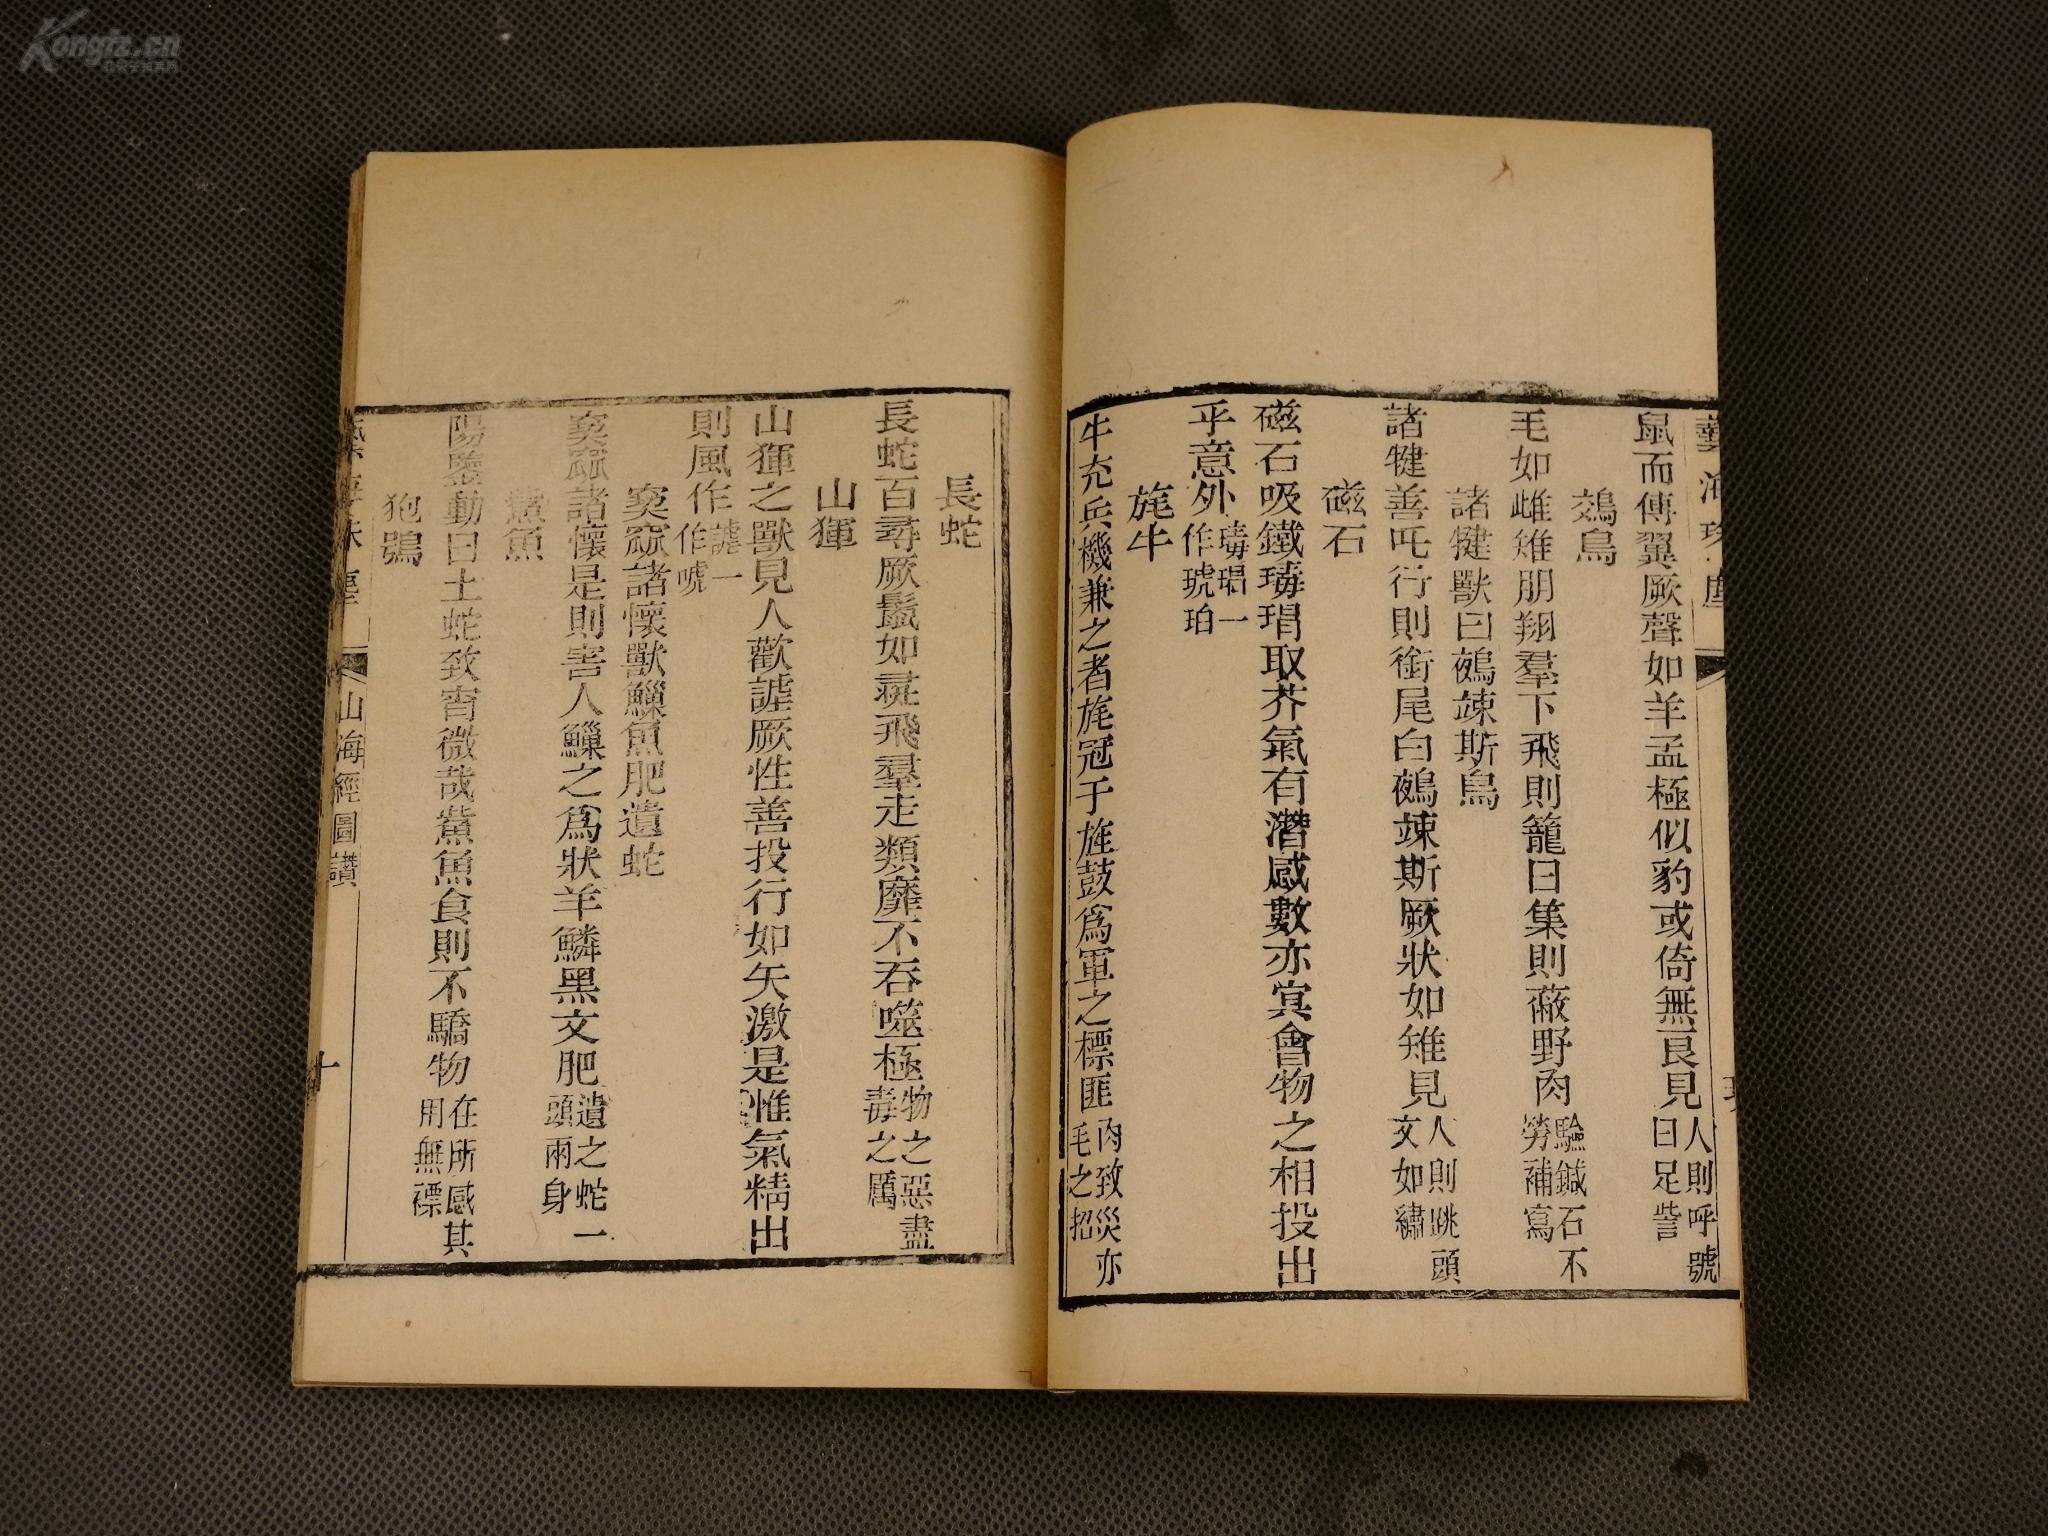 Kongfz.cn
藝海珠塵
鼠而傅翼厥聲如羊孟極似豹或倚無良見人則呼號曰足訾
鵁鳥
毛如雌雉朋翔羣下飛則籠日集則蔽野肉驗鍼石不勞補寫
諸犍獸曰鵺竦斯鳥
諸犍善吒行則銜尾白鵺竦斯厥狀如雉見人則跳頭文如繡
磁石
磁石吸鐵瑇瑁取芥氣有潛感數亦冥會物之相投出
乎意外瑇瑁一作琥珀
旄牛
牛充兵機兼之者旄冠于旌鼓爲軍之標匪肉致災亦毛之招
長蛇
長蛇百尋厥鬛如彘飛羣走類靡不吞噬極物之惡盡毒之厲
山𤟤
山𤟤之獸見人歡謔厥性善投行如矢激是惟氣精出
則風作謔一作唬
窫窳諸懷獸鱳魚肥遺蛇
窫窳諸懷是則害人鱳之爲狀羊鱗黑文肥遺之蛇一頭兩身
鮆魚
陽鑒動日土蛇致宵微哉鮆魚食則不驕物在所感其用無標
狍鴞
山海經圖讚
十